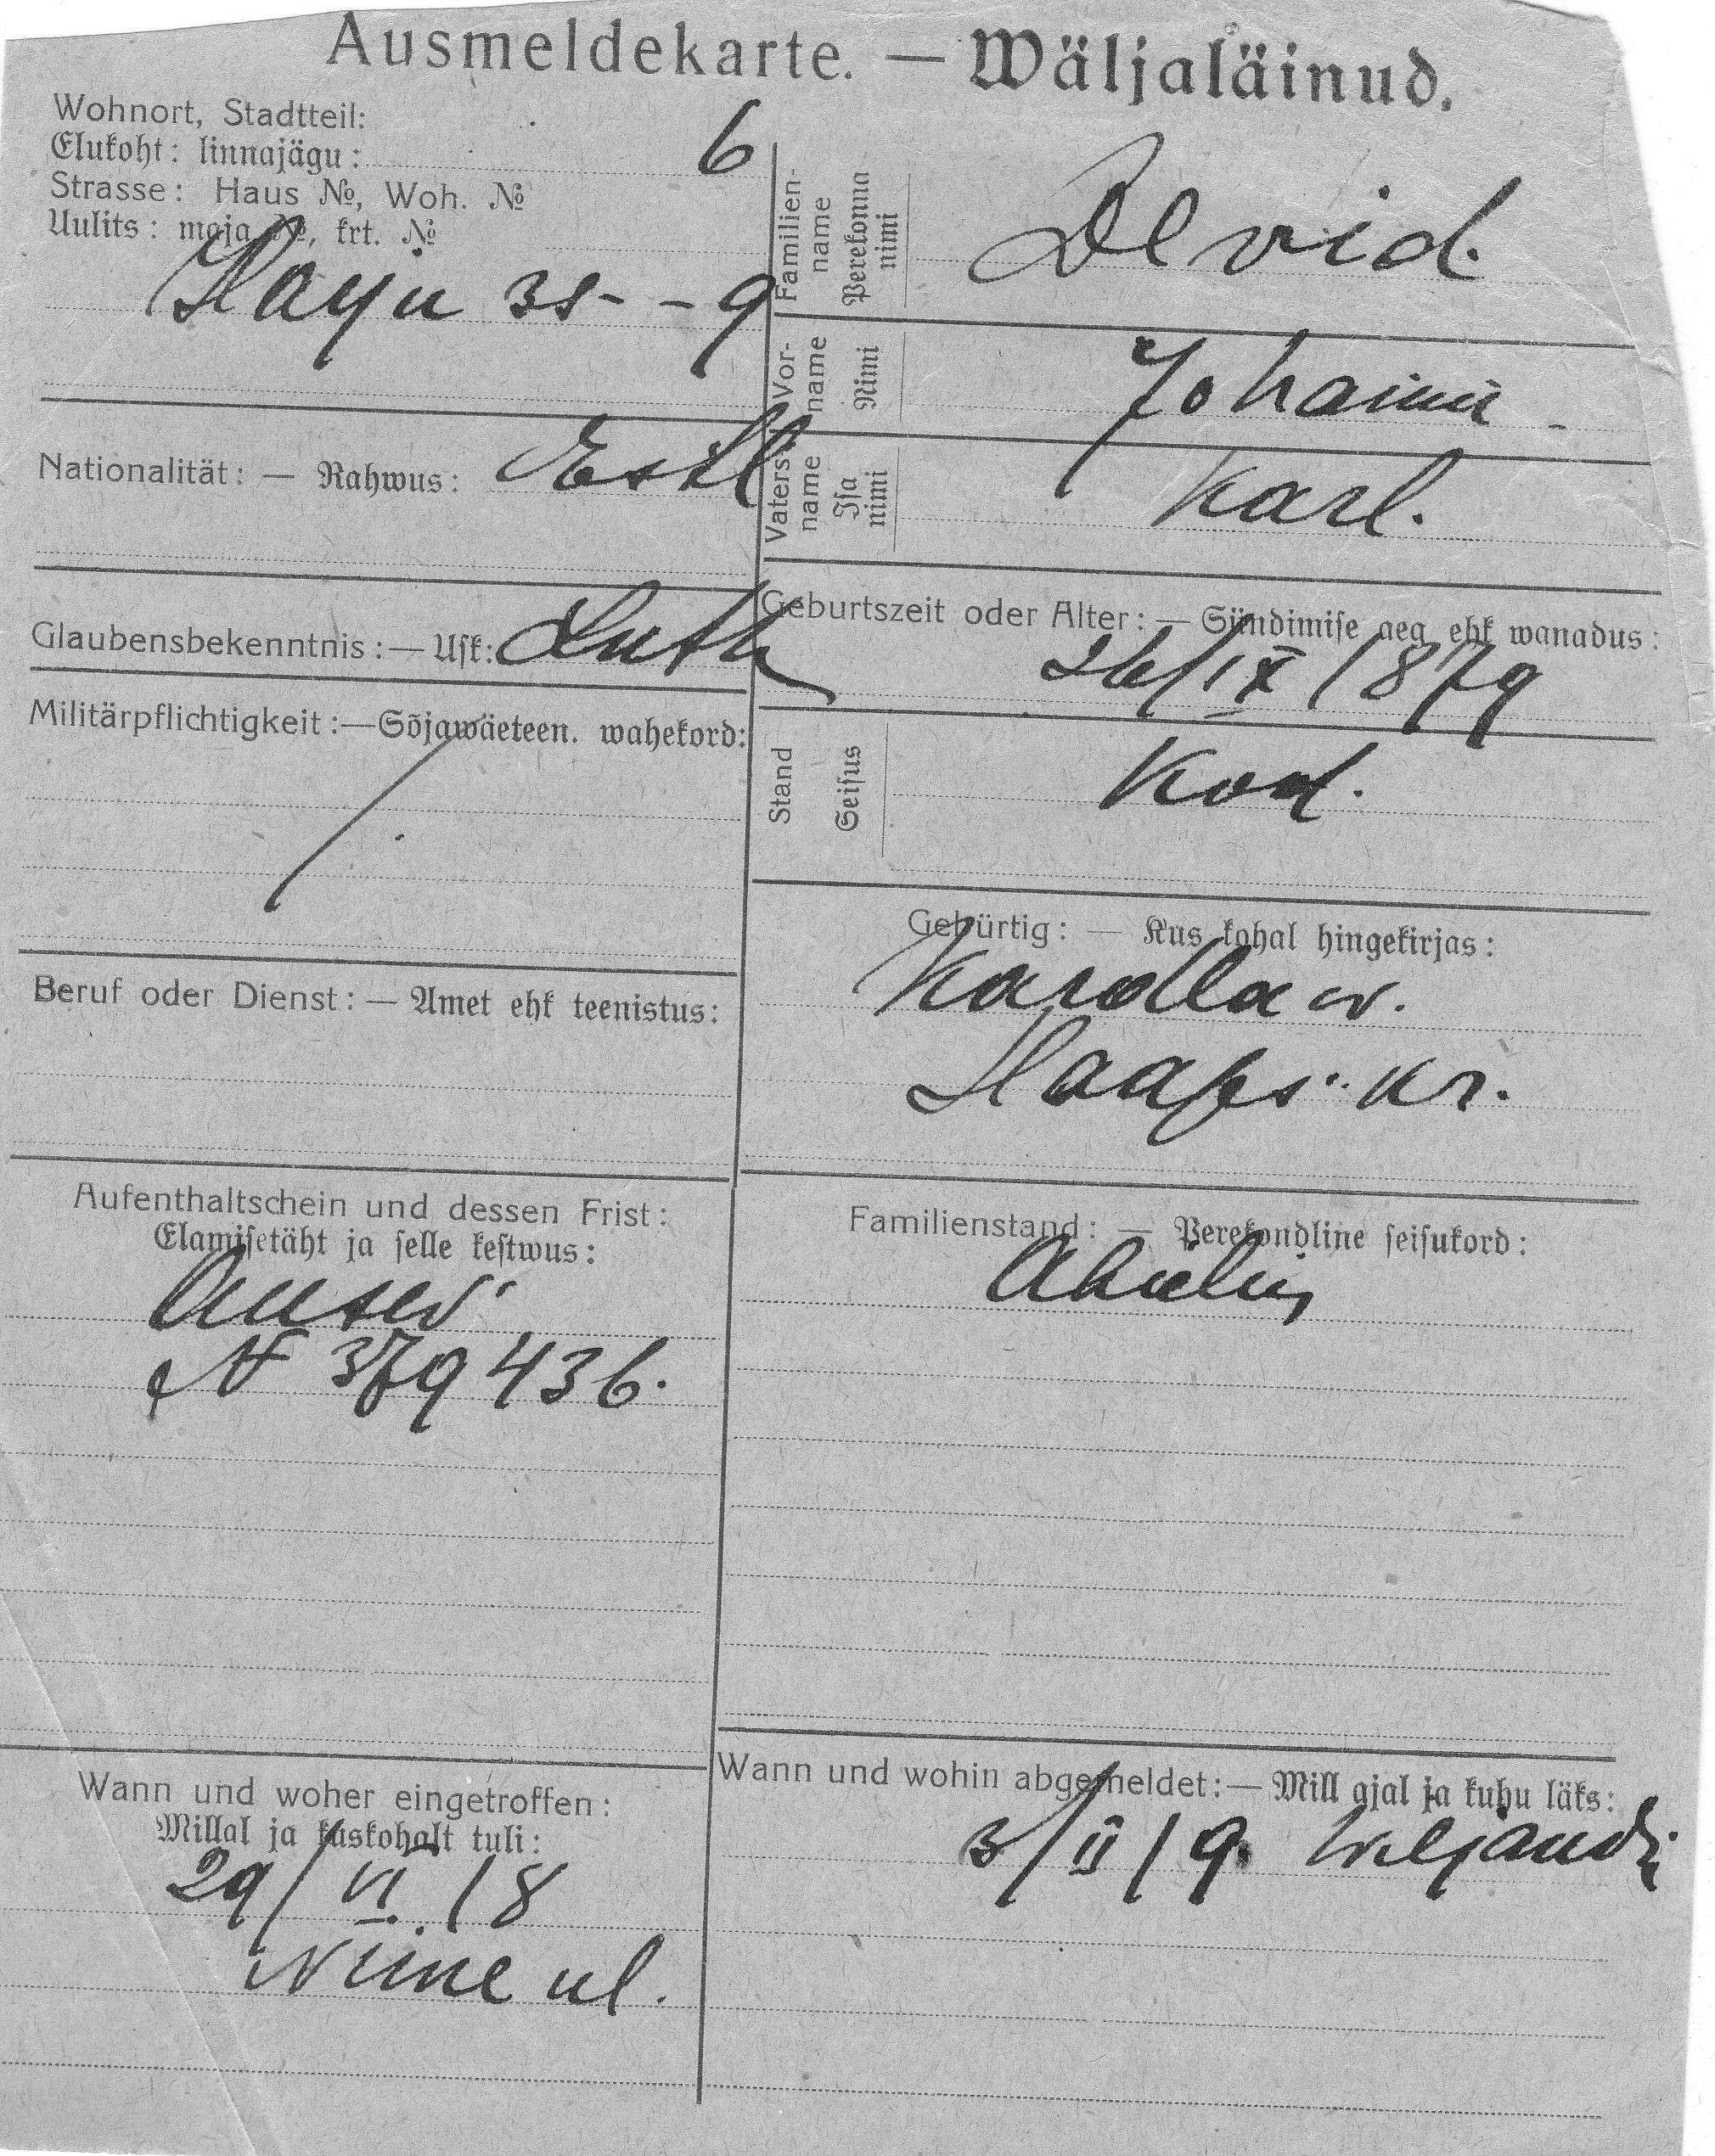 Ausmeldekarte. — Wäljaläinud.
Wohnort, Stadtteil:
Elukoht: linnajägu: 6
Strasse: Haus №, Woh. №
Uulits: maja №, krt. №
Harju 38 - 9
Familien-name
Perekonna nimi
David.
Vor-name
Nimi
Johanna
Vaters-name
Isa nimi
Karl.
Nationalität: — Rahwus: Estl
Glaubensbekenntnis: — Usk: Luth
Militärpflichtigkeit: — Sõjawäeteen. wahekord:
Geburtszeit oder Alter: — Sündimise aeg ehk wanadus:
26/IX 1879
Stand
Seisus
Kod.
Beruf oder Dienst: — Amet ehk teenistus:
Gebürtig: — Kus kohal hingekirjas:
Kardla w.
Haaps. kr.
Aufenthaltschein und dessen Frist:
Elamisetäht ja selle kestwus:
Ausw.
N 379436.
Familienstand: — Perekondline seisukord:
Abielus
Wann und woher eingetroffen:
Millal ja kuskohalt tuli:
29/VI. 18
Niine ul.
Wann und wohin abgemeldet: — Mill ajal ja kuhu läks:
3/II 19. Wiljandi